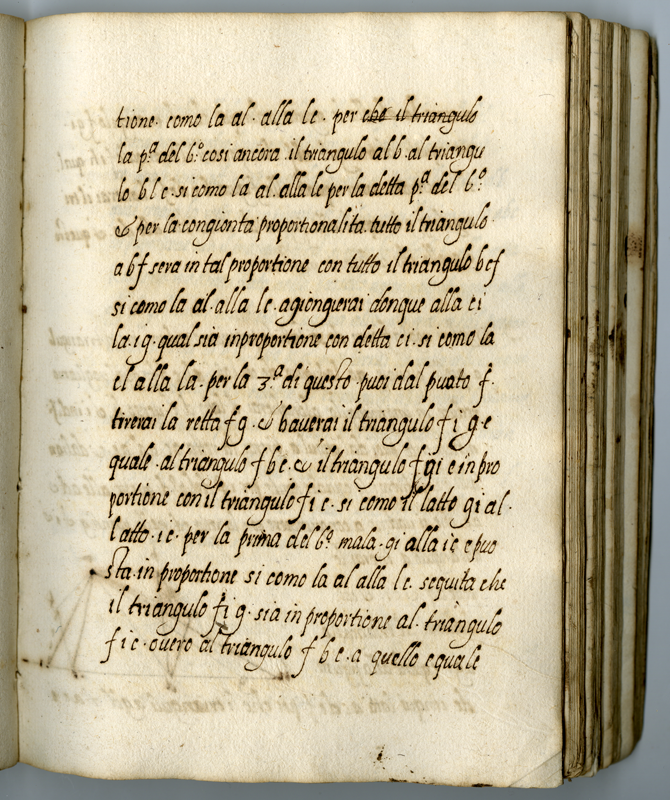 tione. come la al. alla le. per che il triangulo
la pª del 6º cosi ancora il triangulo alb. al triangu
lo blc. si come la al. alla le per la detta pª del 6º
& per la congionta proportionalita tutto il triangulo
abf sera in tal proportione con tutto il triangulo bcf
si come la al. alla le. agiongierai donque alla ci
la. ig. qual sia inproportione con detta ci. si come la
el alla la. per la 3ª di questo. puoi dal punto f.
tirerai la retta fg. & haverai il triangulo fig. e
quale. al triangulo fbe. & il triangulo fgi e in pro
portione con il triangulo fie. si come il latto gi al.
latto. ie. per la prima del 6º. ma la. gi alla ie e puo
sta in proportione si come la al alla le. seguita che
il triangulo fig. sia in proportione al. triangulo
fie. overo al triangulo fbe. a quello equale